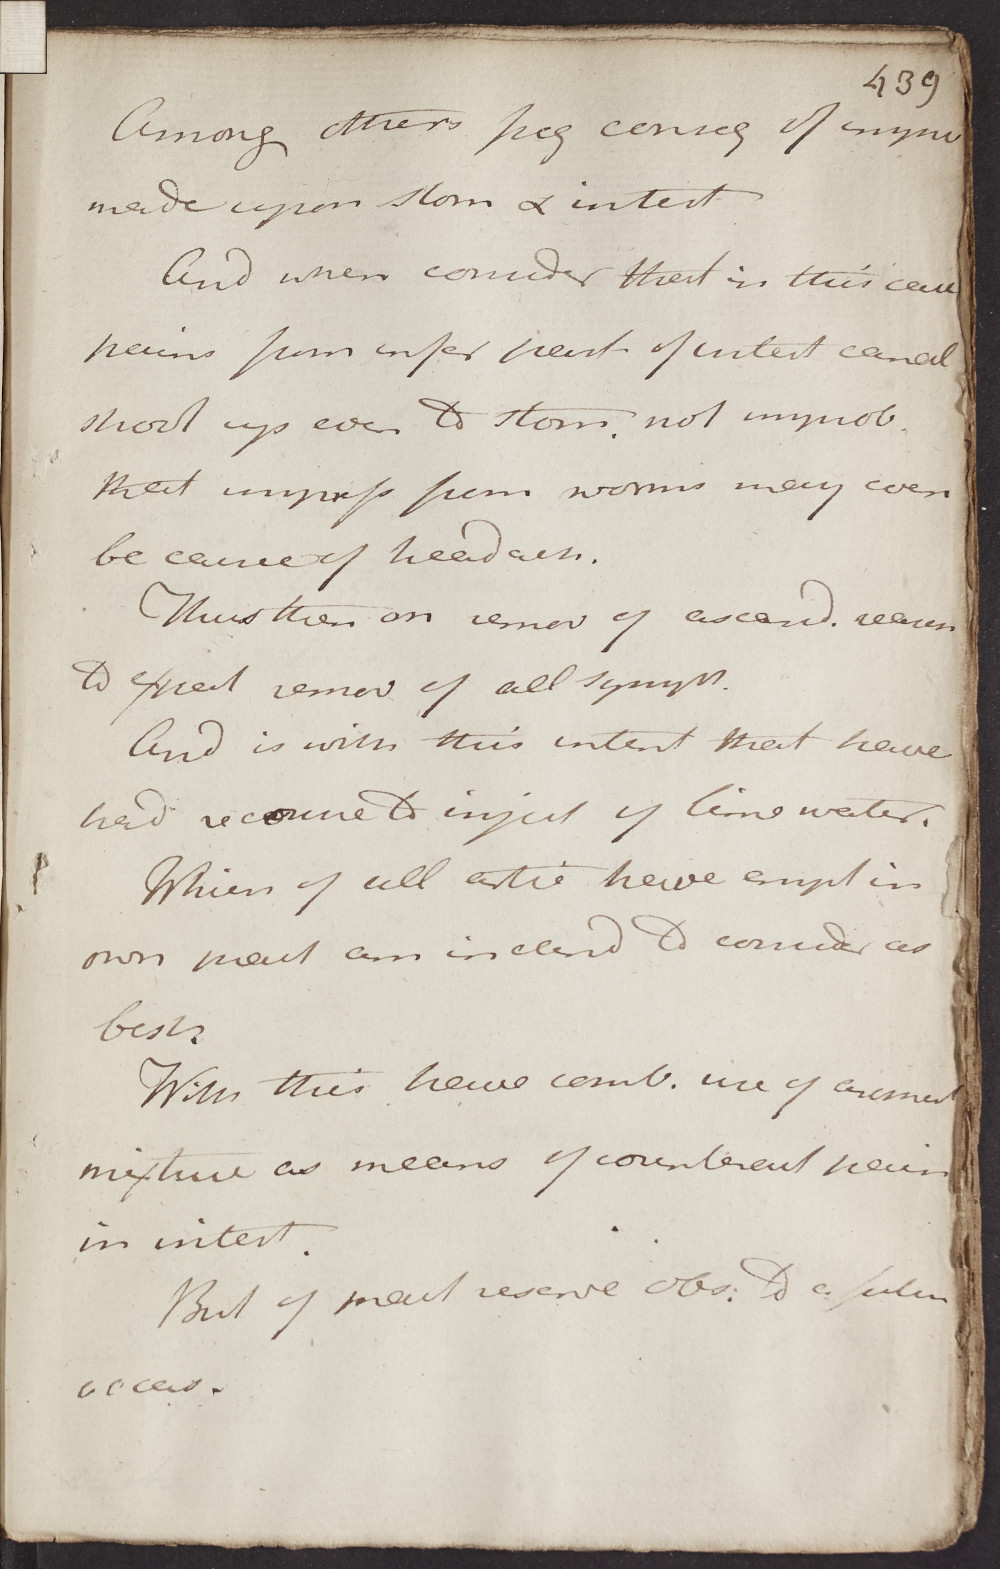 439
Among others freq conseq of impres
made upon stom & intest
And when consider that in this case
pains from infer part of intest canal
shoot up even to stom. not improb.
that impress from worms may even
be cause of headach.
Thus then on remov of ascarid. reason
to expect remov of all sympt.
And is with this intent that have
had recourse to inject of lime water.
Which of all artic have empl in
own pract am inclend to consider as
best.
With this have comb. use of aromat
mixture as means of counteract pain
in intest.
But of pract reserve obs. to a futur
occas.